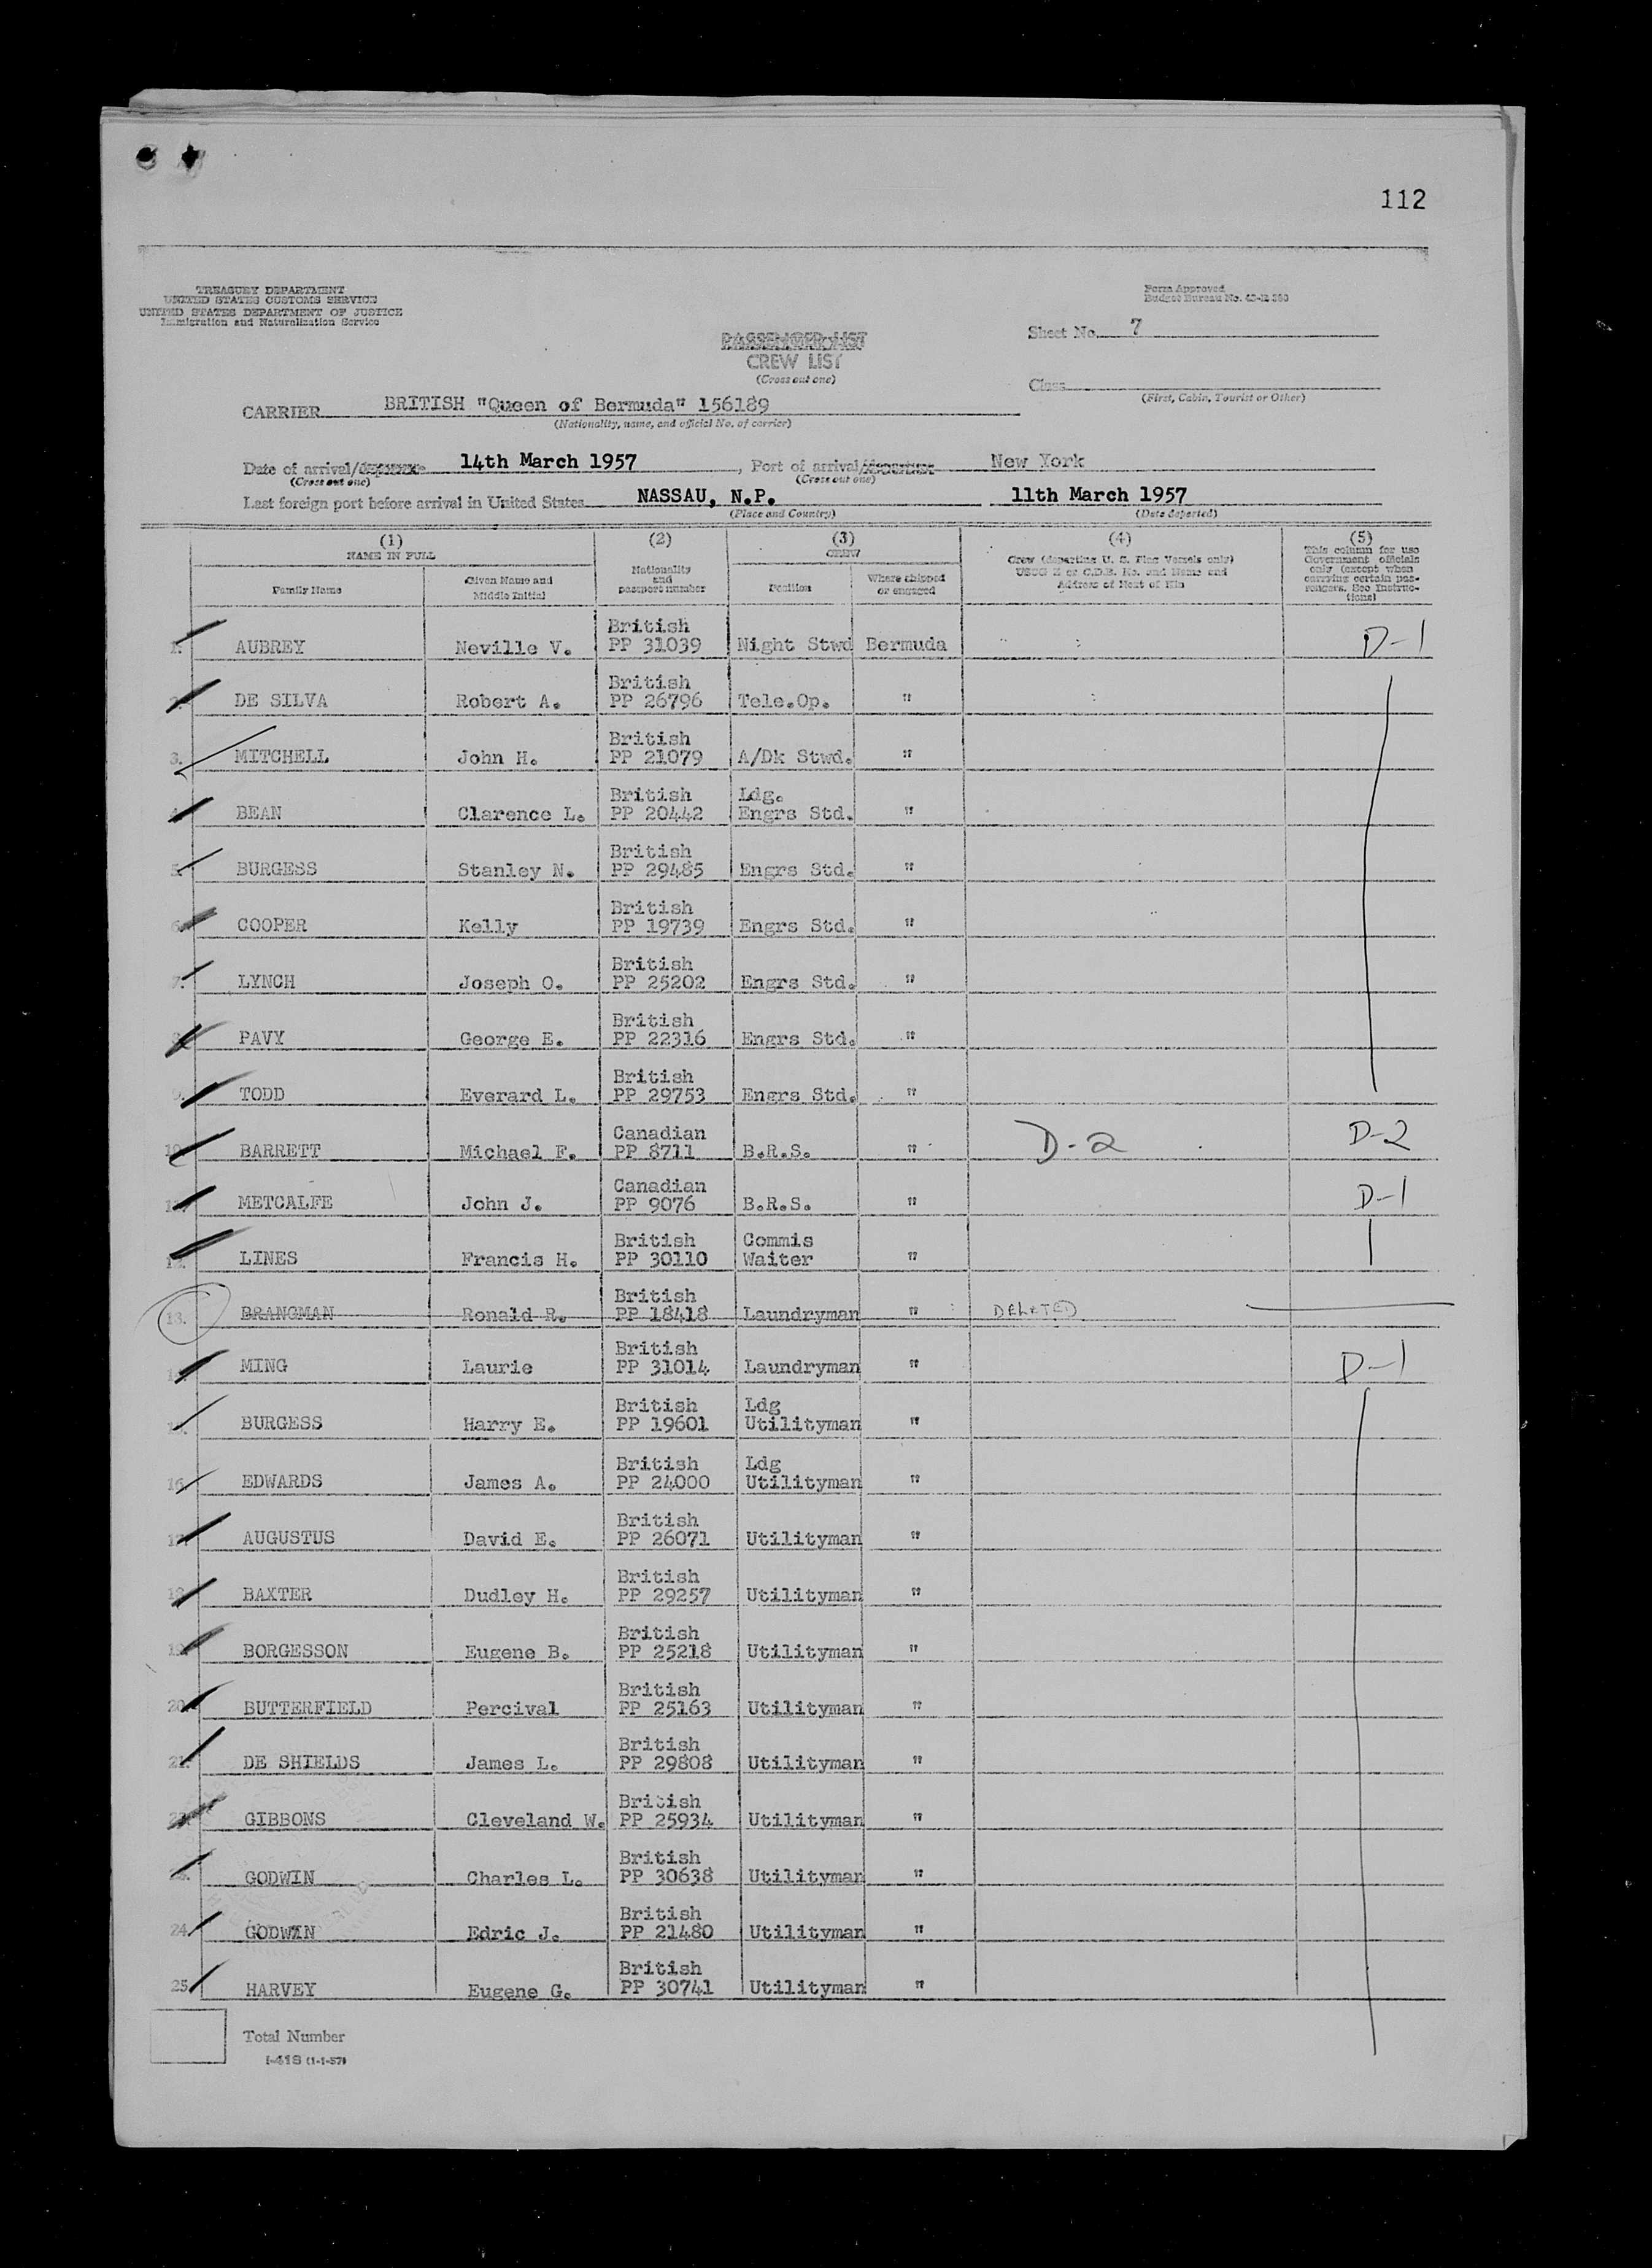 112
TREASURY DEPARTMENT
UNITED STATES CUSTOMS SERVICE
UNITED STATES DEPARTMENT OF JUSTICE
Immigration and Naturalization Service
Form Approved
Budget Bureau No.
Sheet No. 7
PASSENGER LIST
CREW LIST
(Cross out one)
Class
(First, Cabin, Tourist or Other)
CARRIER BRITISH "Queen of Bermuda" 156189
(Nationality, name, and official No. of carrier)
Date of arrival/departure 14th March 1957, Port of arrival/departure New York
(Cross out one) (Cross out one)
Last foreign port before arrival in United States NASSAU, N.P. 11th March 1957
(Place and Country) (Date departed)
(1) (2) (3) (4) (5)
NAME IN FULL Nationality and passport number CREW Crew (departing U. S. Flag Vessels only) USCG Z or C.D.B. No. and Name and Address of Next of Kin This column for use Government officials only (except when carrying certain passengers. See Instructions)
Family Name Given Name and Middle Initial Position Where shipped or engaged
1. AUBREY Neville V. British PP 31039 Night Stwd Bermuda D-1
2. DE SILVA Robert A. British PP 26796 Tele.Op. "
3. MITCHELL John H. British PP 21079 A/Dk Stwd. "
4. BEAN Clarence L. British PP 20442 Ldg. Engrs Std. "
5. BURGESS Stanley N. British PP 29485 Engrs Std. "
6. COOPER Kelly British PP 19739 Engrs Std. "
7. LYNCH Joseph O. British PP 25202 Engrs Std. "
8. PAVY George E. British PP 22316 Engrs Std. "
9. TODD Everard L. British PP 29753 Engrs Std. "
10. BARRETT Michael F. Canadian PP 8711 B.R.S. " D-2 D-2
11. METCALFE John J. Canadian PP 9076 B.R.S. " D-1
12. LINES Francis H. British PP 30110 Commis Waiter "
13. BRANGMAN Ronald R. British PP 18418 Laundryman " DELETED
14. MING Laurie British PP 31014 Laundryman " D-1
15. BURGESS Harry E. British PP 19601 Ldg Utilityman "
16. EDWARDS James A. British PP 24000 Ldg Utilityman "
17. AUGUSTUS David E. British PP 26071 Utilityman "
18. BAXTER Dudley H. British PP 29257 Utilityman "
19. BORGESSON Eugene B. British PP 25218 Utilityman "
20. BUTTERFIELD Percival British PP 25163 Utilityman "
21. DE SHIELDS James L. British PP 29808 Utilityman "
22. GIBBONS Cleveland W. British PP 25934 Utilityman "
23. GODWIN Charles L. British PP 30638 Utilityman "
24. GODWIN Edric J. British PP 21480 Utilityman "
25. HARVEY Eugene G. British PP 30741 Utilityman "
Total Number
I-418 (1-1-57)